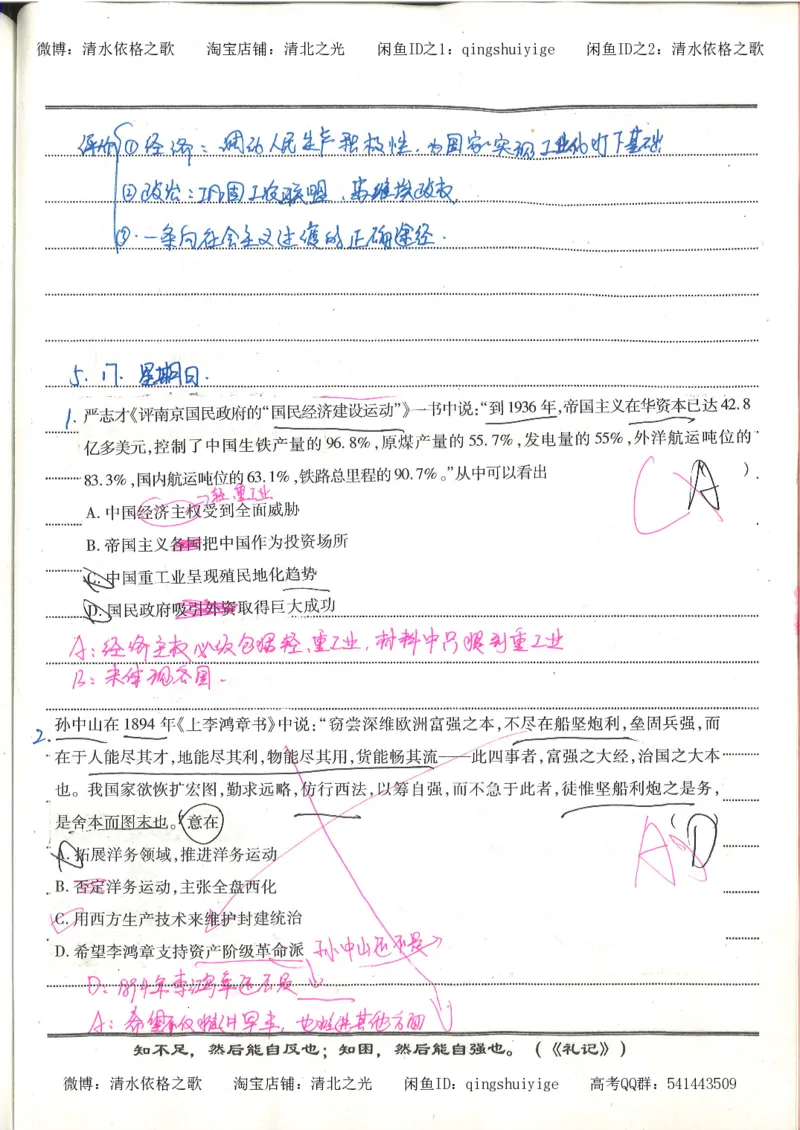 微博：清水依格之歌 淘宝店铺：清北之光 闲鱼ID之1：qingshuiyige 闲鱼ID之2：清水依格之歌
评价①经济：调动人民生产积极性，为国家实现工业化打下基础
②政治：巩固工农联盟，
③.一条向社会主义过渡的正确途径.
5.17.星期日.
1.严志才《评南京国民政府的“国民经济建设运动”》一书中说：“到1936年，帝国主义在华资本已达42.8
亿多美元，控制了中国生铁产量的96.8%，原煤产量的55.7%，发电量的55%，外洋航运吨位的
83.3%，国内航运吨位的63.1%，铁路总里程的90.7%。”从中可以看出 （A）
轻.重工业
A.中国经济主权受到全面威胁
B.帝国主义各国把中国作为投资场所
C.中国重工业呈现殖民地化趋势
D.国民政府吸引外资取得巨大成功
A：经济主权必须包括轻、重工业，材料中只提到重工业
B：未体现各国.
2.孙中山在1894年《上李鸿章书》中说：“窃尝深维欧洲富强之本，不尽在船坚炮利，垒固兵强，而
在于人能尽其才，地能尽其利，物能尽其用，货能畅其流——此四事者，富强之大经，治国之大本
也。我国家欲恢扩宏图，勤求远略，仿行西法，以筹自强，而不急于此者，徒惟坚船利炮之是务，
是舍本而图末也。”意在 （D）
A.拓展洋务领域，推进洋务运动
B.否定洋务运动，主张全盘西化
C.用西方生产技术来维护封建统治
D.希望李鸿章支持资产阶级革命派 孙中山还不是
D：1894年李鸿章还不是
A：希望不仅推进军事，也推进其他方面
知不足，然后能自反也；知困，然后能自强也。（《礼记》）
微博：清水依格之歌 淘宝店铺：清北之光 闲鱼ID：qingshuiyige 高考QQ群：541443509